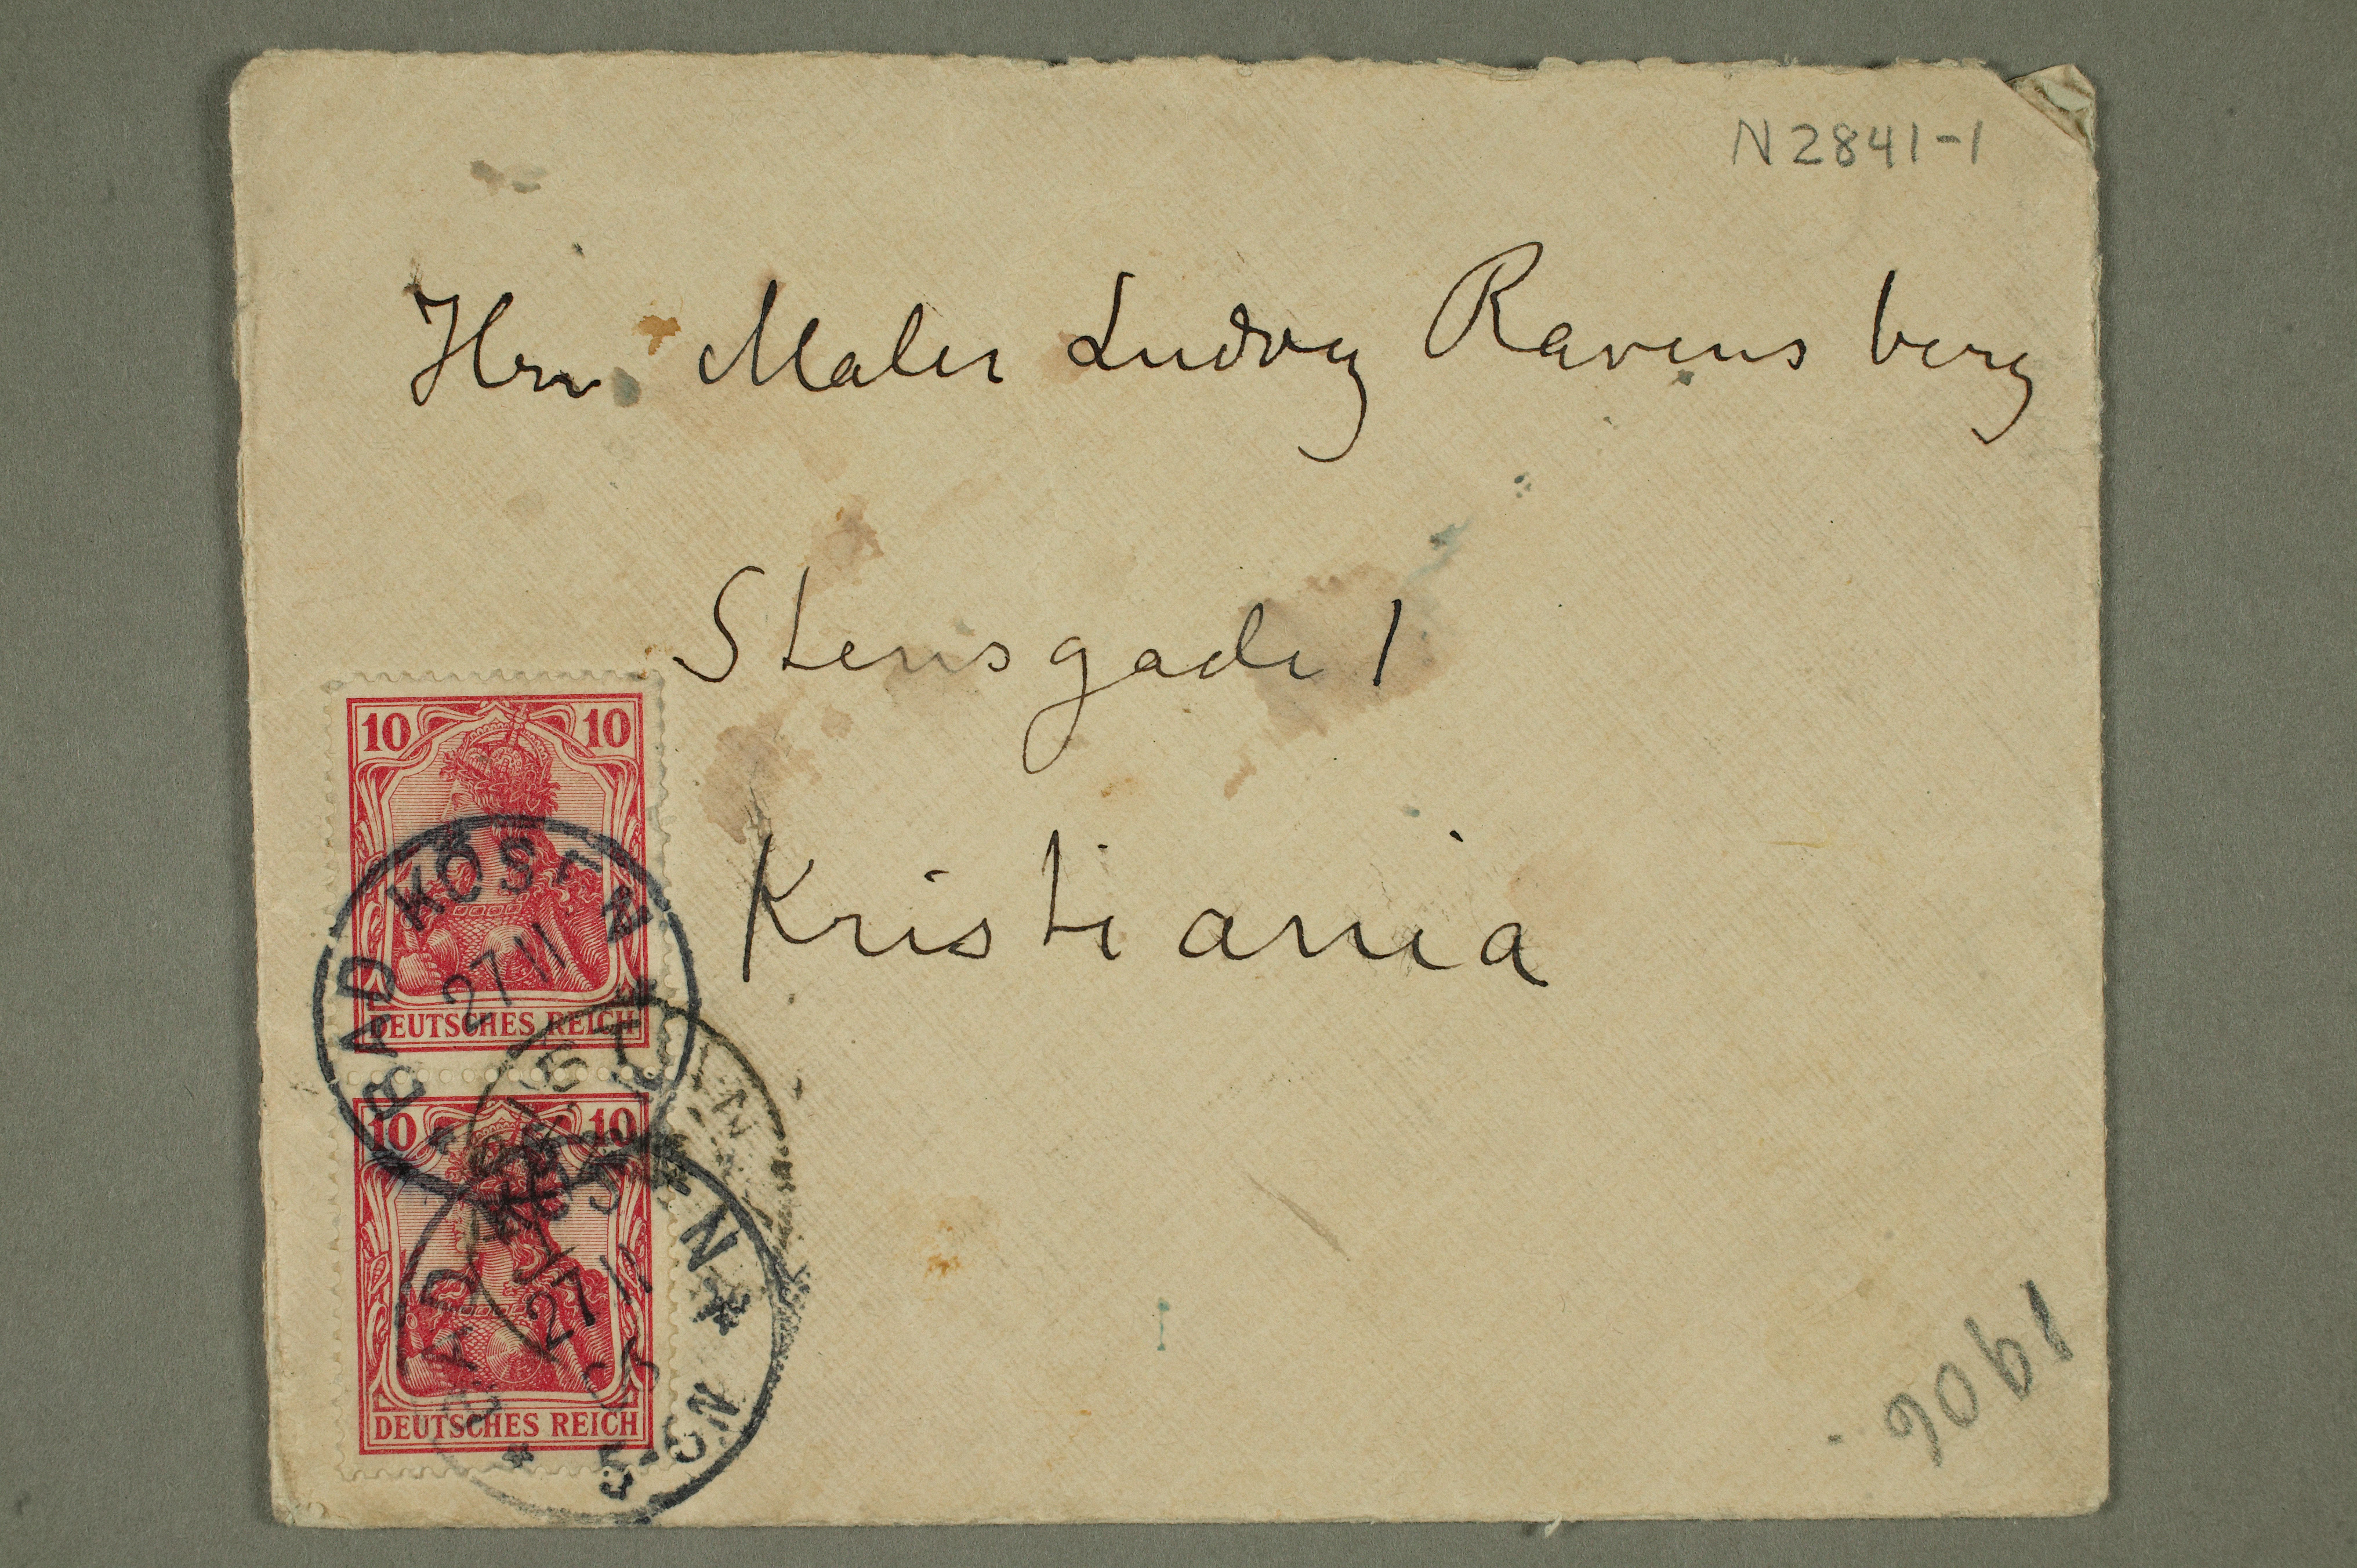 N 2841-1
Hrn. Maler Ludvig Ravensberg
Stensgade 1
Kristiania
10 10
DEUTSCHES REICH
BAD KÖSEN
27 11
10 10
DEUTSCHES REICH
BAD KÖSEN
27 11
1906